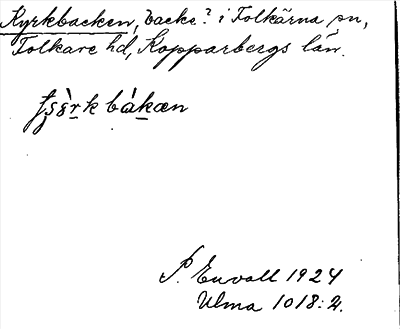 Kyrkbacken, backe? i Folkärna sn,
Folkare hd, Kopparbergs län.
bàkæn
P. Envall 1924
Ulma 1018:2.